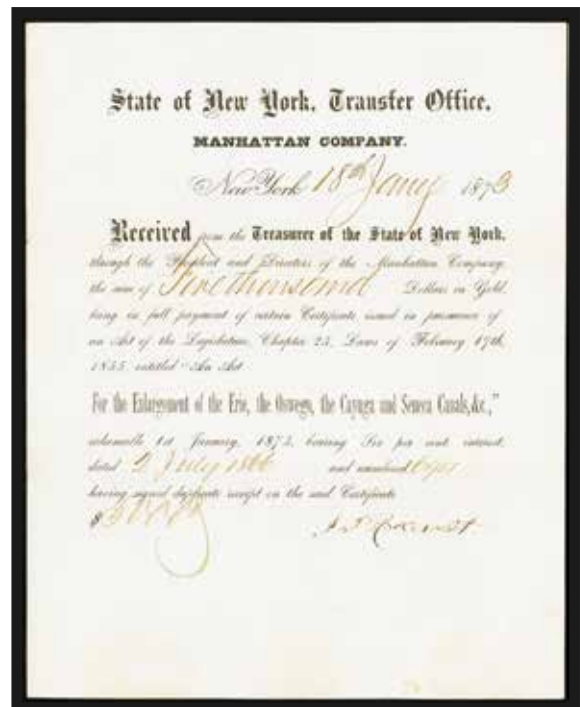 State of New York, Transfer Office.
MANHATTAN COMPANY.
New York 18th Jany 1873
Received from the Treasurer of the State of New York,
through the President and Directors of the Manhattan Company,
the sum of Five thousand Dollars in Gold,
being in full payment of certain Certificate issued in pursuance of
an Act of the Legislature, Chapter 25, Laws of February 17th,
1855 entitled "An Act
For the Enlargement of the Erie, the Oswego, the Cayuga and Seneca Canals, &c.,"
redeemable 1st January, 1873, bearing Six per cent interest,
dated 2 July 1866 and numbered
having signed duplicate receipt on the said Certificate
$